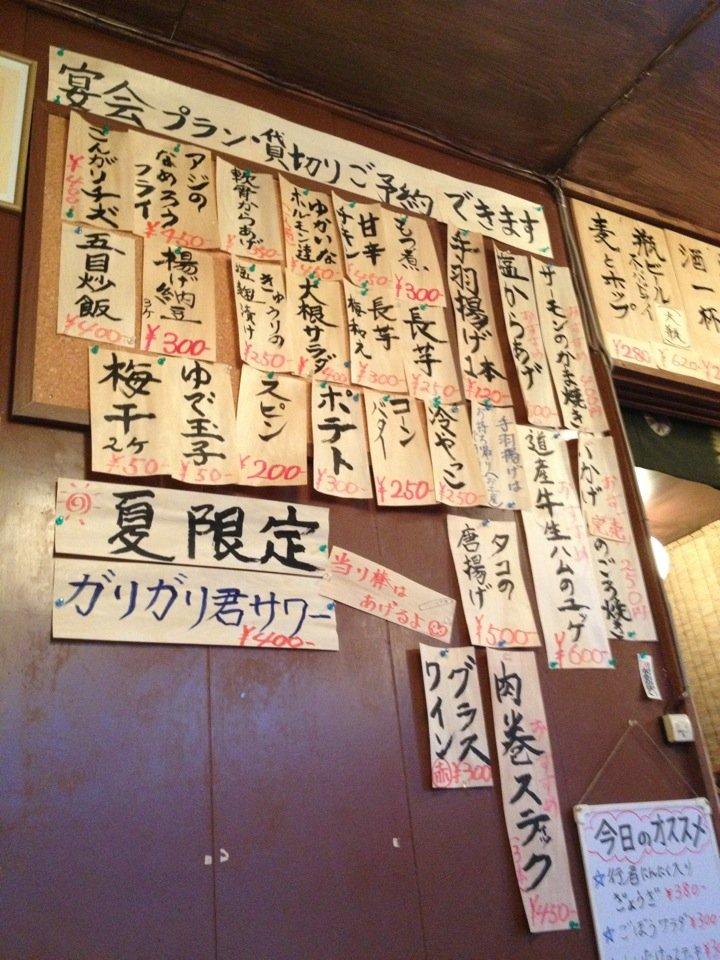 宴会プラン・貸切りご予約できます
こんがりチーズ
¥400-
アジの
なめろう
フライ
¥450-
軟骨からあげ
¥350
ゆかいな
ホルモン達
¥450-
甘辛
チキン
¥450-
もつ煮
¥300-
手羽揚げ1本
¥120-
塩からあげ
おすすめ
サーモンのかま焼き
おすすめ
五目炒飯
¥400-
揚げ納豆
3ケ
¥300-
きゅうりの
塩麹漬け
¥250-
大根サラダ
¥400-
長芋
梅和え
¥300-
長芋
¥250-
梅干
2ケ
¥50-
ゆで玉子
¥50-
スピン
¥200-
ポテト
¥300-
コーン
バター
¥250-
冷やっこ
¥250-
手羽揚げは
道産牛生ハムのユッケ
¥600-
ごろ焼き
250円
タコの
唐揚げ
¥500-
夏限定
ガリガリ君サワー
¥400-
当り棒は
あげるよ
グラス
ワイン
赤
¥300
肉巻スティック
おすすめ
3本
¥450-
麦とホップ
¥280
瓶ビール
大瓶
¥620-
酒一杯
今日のオススメ
☆行者にんにく入り
ぎょうざ ¥380-
☆ごぼうサラダ ¥300